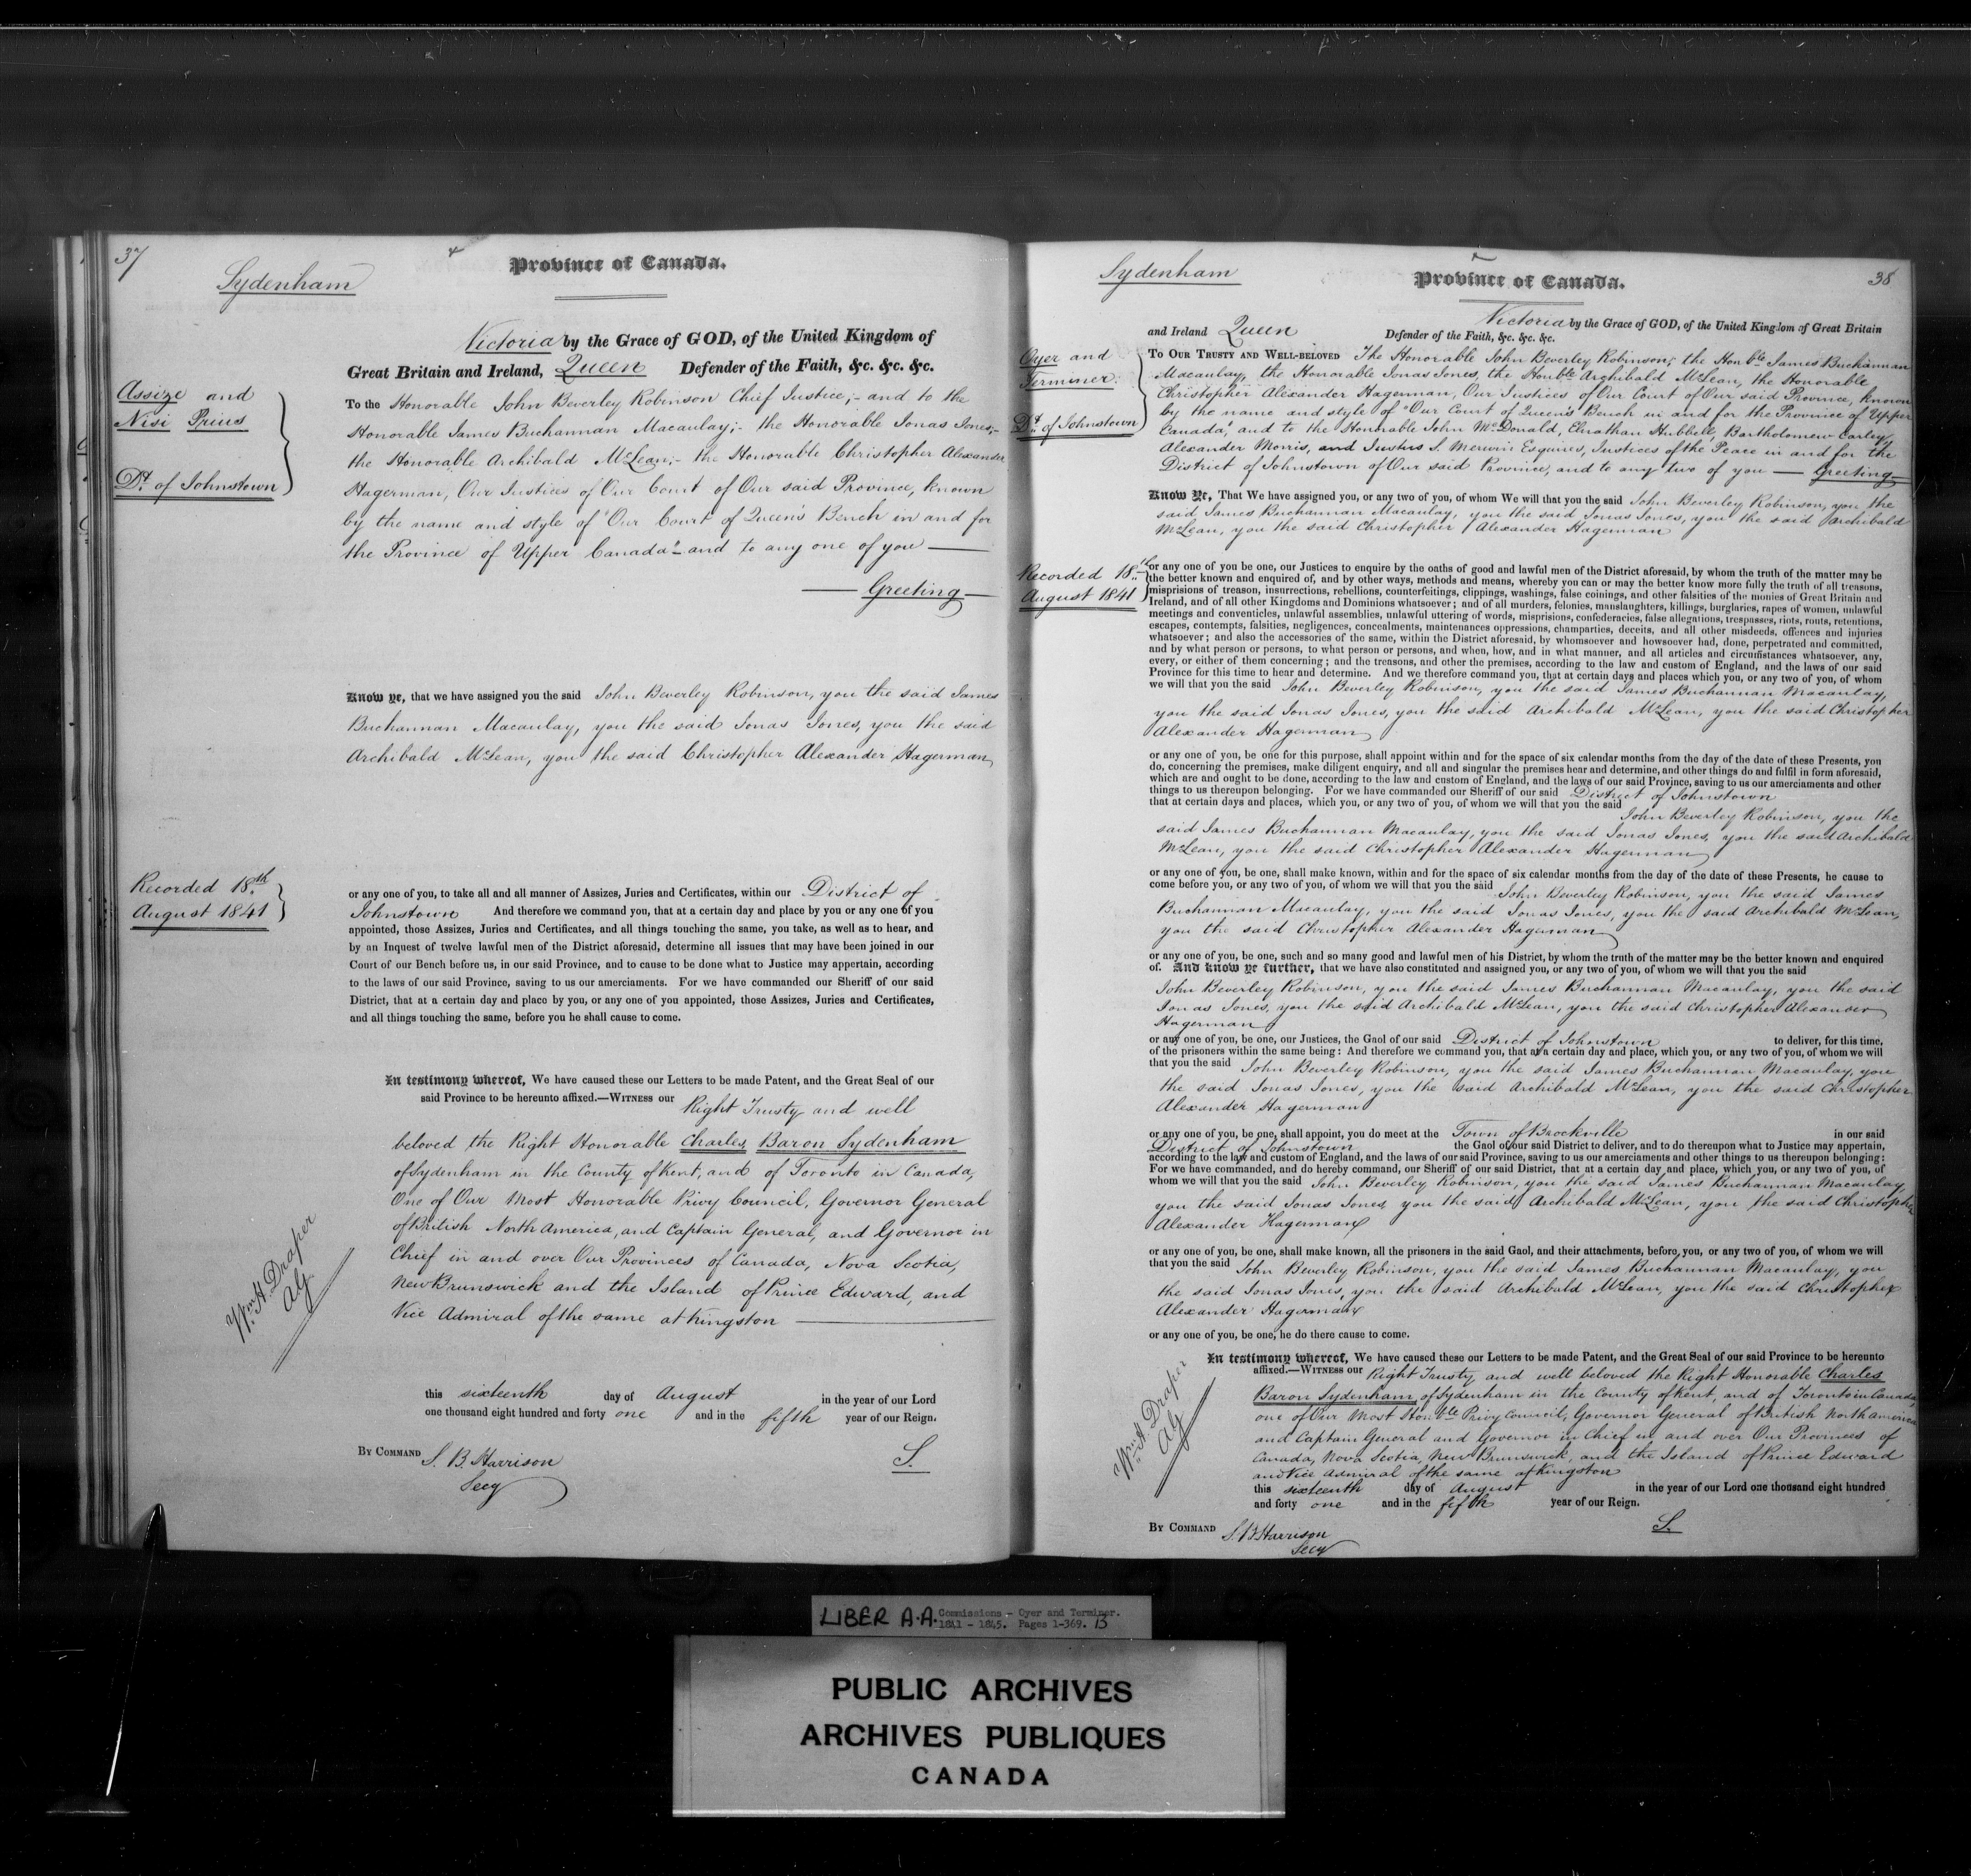 37
Sydenham
Province of Canada.
Victoria by the Grace of GOD, of the United Kingdom of
Great Britain and Ireland, Queen Defender of the Faith, &c. &c. &c.
Assize and
Nisi Prius
Dt. of Johnstown
To the Honorable John Beverley Robinson Chief Justice;- and to the
Honorable James Buchannan Macaulay;- the Honorable Jonas Jones;-
the Honorable Archibald McLean;- the Honorable Christopher Alexander
Hagerman, Our Justices of Our Court of Our said Province, known
by the name and style of "Our Court of Queen's Bench in and for
the Province of Upper Canada" and to any one of you —
— Greeting —
Know ye, that we have assigned you the said John Beverley Robinson, you the said James
Buchannan Macaulay, you the said Jonas Jones, you the said
Archibald McLean, you the said Christopher Alexander Hagerman
Recorded 18th
August 1841
or any one of you, to take all and all manner of Assizes, Juries and Certificates, within our District of
Johnstown And therefore we command you, that at a certain day and place by you or any one of you
appointed, those Assizes, Juries and Certificates, and all things touching the same, you take, as well as to hear, and
by an Inquest of twelve lawful men of the District aforesaid, determine all issues that may have been joined in our
Court of our Bench before us, in our said Province, and to cause to be done what to Justice may appertain, according
to the laws of our said Province, saving to us our amerciaments. For we have commanded our Sheriff of our said
District, that at a certain day and place by you, or any one of you appointed, those Assizes, Juries and Certificates,
and all things touching the same, before you he shall cause to come.
In testimony whereof, We have caused these our Letters to be made Patent, and the Great Seal of our
said Province to be hereunto affixed.—WITNESS our Right Trusty and well
beloved the Right Honorable Charles, Baron Sydenham
of Sydenham in the County of Kent, and of Toronto in Canada,
One of Our Most Honorable Privy Council, Governor General
of British North America, and Captain General, and Governor in
Chief in and over Our Provinces of Canada, Nova Scotia,
New Brunswick and the Island of Prince Edward, and
Vice Admiral of the same at Kingston —
Wm. H. Draper
Atg
this sixteenth day of August in the year of our Lord
one thousand eight hundred and forty one and in the fifth year of our Reign.
BY COMMAND S. B. Harrison
Secy
S.
Sydenham
Province of Canada.
38
Victoria by the Grace of GOD, of the United Kingdom of Great Britain
and Ireland Queen Defender of the Faith, &c. &c. &c.
Oyer and
Terminer.
Dt. of Johnstown
TO OUR TRUSTY AND WELL-BELOVED The Honorable John Beverley Robinson; the Honble James Buchannan
Macaulay, the Honorable Jonas Jones, the Honble Archibald McLean, the Honorable
Christopher Alexander Hagerman, Our Justices of Our Court of Our said Province, known
by the name and style of "Our Court of Queen's Bench in and for the Province of Upper
Canada", and to the Honorable John McDonald, Elnathan Hubbell, Bartholomew Carley,
Alexander Morris, and Justus S. Merwin Esquires, Justices of the Peace in and for the
District of Johnstown of Our said Province, and to any two of you — Greeting
Know Ye, That We have assigned you, or any two of you, of whom We will that you the said John Beverley Robinson, you the
said James Buchannan Macaulay, you the said Jonas Jones, you the said Archibald
McLean, you the said Christopher Alexander Hagerman
Recorded 18th
August 1841
or any one of you be one, our Justices to enquire by the oaths of good and lawful men of the District aforesaid, by whom the truth of the matter may be
the better known and enquired of, and by other ways, methods and means, whereby you can or may the better know more fully the truth of all treasons,
misprisions of treason, insurrections, rebellions, counterfeitings, clippings, washings, false coinings, and other falsities of the monies of Great Britain and
Ireland, and of all other Kingdoms and Dominions whatsoever; and of all murders, felonies, manslaughters, killings, burglaries, rapes of women, unlawful
meetings and conventicles, unlawful assemblies, unlawful uttering of words, misprisions, confederacies, false allegations, trespasses, riots, routs, retentions,
escapes, contempts, falsities, negligences, concealments, maintenances oppressions, champarties, deceits, and all other misdeeds, offences and injuries
whatsoever; and also the accessories of the same, within the District aforesaid, by whomsoever and howsoever had, done, perpetrated and committed,
and by what person or persons, to what person or persons, and when, how, and in what manner, and all articles and circumstances whatsoever, any,
every, or either of them concerning; and the treasons, and other the premises, according to the law and custom of England, and the laws of our said
Province for this time to hear and determine. And we therefore command you, that at certain days and places which you, or any two of you, of whom
we will that you the said John Beverley Robinson, you the said James Buchannan Macaulay,
you the said Jonas Jones, you the said Archibald McLean, you the said Christopher
Alexander Hagerman
or any one of you, be one for this purpose, shall appoint within and for the space of six calendar months from the day of the date of these Presents, you
do, concerning the premises, make diligent enquiry, and all and singular the premises hear and determine, and other things do and fulfil in form aforesaid,
which are and ought to be done, according to the law and custom of England, and the laws of our said Province, saving to us our amerciaments and other
things to us thereupon belonging. For we have commanded our Sheriff of our said District of Johnstown
that at certain days and places, which you, or any two of you, of whom we will that you the said John Beverley Robinson, you the
said James Buchannan Macaulay, you the said Jonas Jones, you the said Archibald
McLean, you the said Christopher Alexander Hagerman
or any one of you, be one, shall make known, within and for the space of six calendar months from the day of the date of these Presents, he cause to
come before you, or any two of you, of whom we will that you the said John Beverley Robinson, you the said James
Buchannan Macaulay, you the said Jonas Jones, you the said Archibald McLean,
you the said Christopher Alexander Hagerman
or any one of you, be one, such and so many good and lawful men of his District, by whom the truth of the matter may be the better known and enquired
of. And know ye further, that we have also constituted and assigned you, or any two of you, of whom we will that you the said
John Beverley Robinson, you the said James Buchannan Macaulay, you the said
Jonas Jones, you the said Archibald McLean, you the said Christopher Alexander
Hagerman
or any one of you, be one, our Justices, the Gaol of our said District of Johnstown to deliver, for this time,
of the prisoners within the same being: And therefore we command you, that at a certain day and place, which you, or any two of you, of whom we will
that you the said John Beverley Robinson, you the said James Buchannan Macaulay, you
the said Jonas Jones, you the said Archibald McLean, you the said Christopher
Alexander Hagerman
or any one of you, be one, shall appoint, you do meet at the Town of Brockville in our said
District of Johnstown the Gaol of our said District to deliver, and to do thereupon what to Justice may appertain,
according to the law and custom of England, and the laws of our said Province, saving to us our amerciaments and other things to us thereupon belonging:
For we have commanded, and do hereby command, our Sheriff of our said District, that at a certain day and place, which you, or any two of you, of
whom we will that you the said John Beverley Robinson, you the said James Buchannan Macaulay,
you the said Jonas Jones, you the said Archibald McLean, you the said Christopher
Alexander Hagerman
or any one of you, be one, shall make known, all the prisoners in the said Gaol, and their attachments, before you, or any two of you, of whom we will
that you the said John Beverley Robinson, you the said James Buchannan Macaulay, you
the said Jonas Jones, you the said Archibald McLean, you the said Christopher
Alexander Hagerman
or any one of you, be one, he do there cause to come.
In testimony whereof, We have caused these our Letters to be made Patent, and the Great Seal of our said Province to be hereunto
affixed.—WITNESS our Right Trusty and well beloved the Right Honorable Charles
Baron Sydenham, of Sydenham in the County of Kent, and of Toronto in Canada,
one of Our Most Honble Privy Council, Governor General of British North America
and Captain General and Governor in Chief in and over Our Provinces of
Canada, Nova Scotia, New Brunswick, and the Island of Prince Edward
and Vice Admiral of the same at Kingston
Wm. H. Draper
Atg
this sixteenth day of August in the year of our Lord one thousand eight hundred
and forty one and in the fifth year of our Reign.
BY COMMAND S. B Harrison
Secy
S.
LIBER A.A. Commissions - Oyer and Terminer.
1841 - 1845. Pages 1-369. B
PUBLIC ARCHIVES
ARCHIVES PUBLIQUES
CANADA